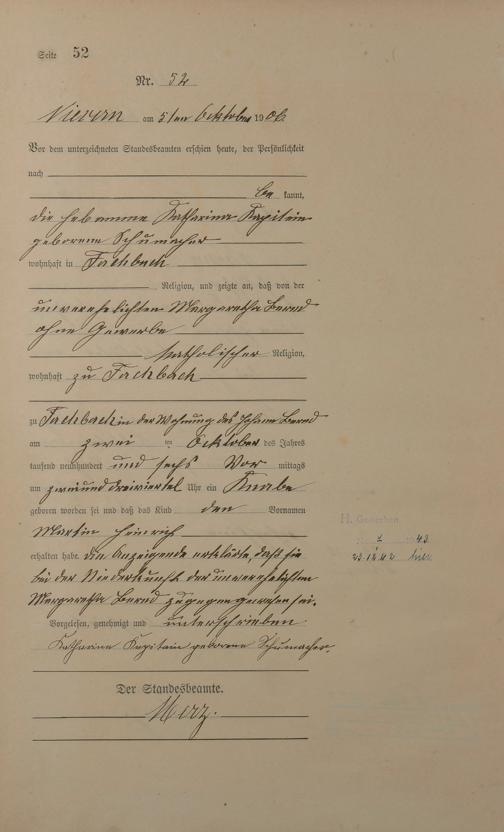 Seite 52
Nr. 52
Nievern am 5ten Oktober 1906
Vor dem unterzeichneten Standesbeamten erschien heute, der Persönlichkeit
nach
be kannt,
die Hebamme Katharina Kapitein
geborene Schumacher
wohnhaft in Fachbach
Religion, und zeigte an, daß von der
unverehelichten Margaretha Bernd
ohne Gewerbe
katholischer Religion,
wohnhaft zu Fachbach
zu Fachbach in der Wohnung des Johann Bernd
am zwei ten Oktober des Jahres
tausend neunhundert und sechs Vor mittags
um zweiunddreiviertel Uhr ein Knabe
geboren worden sei und daß das Kind den Vornamen
Martin Heinrich
erhalten habe. die Anzeigende erklärte, daß sie
bei der Niederkunft der unverehelichten
Margaretha Bernd zugegen gewesen sei.
Vorgelesen, genehmigt und unterschrieben
Katharina Kapitain geborene Schumacher.
Der Standesbeamte.
Merz.
H. Gestorben
43
23.12.42 hier